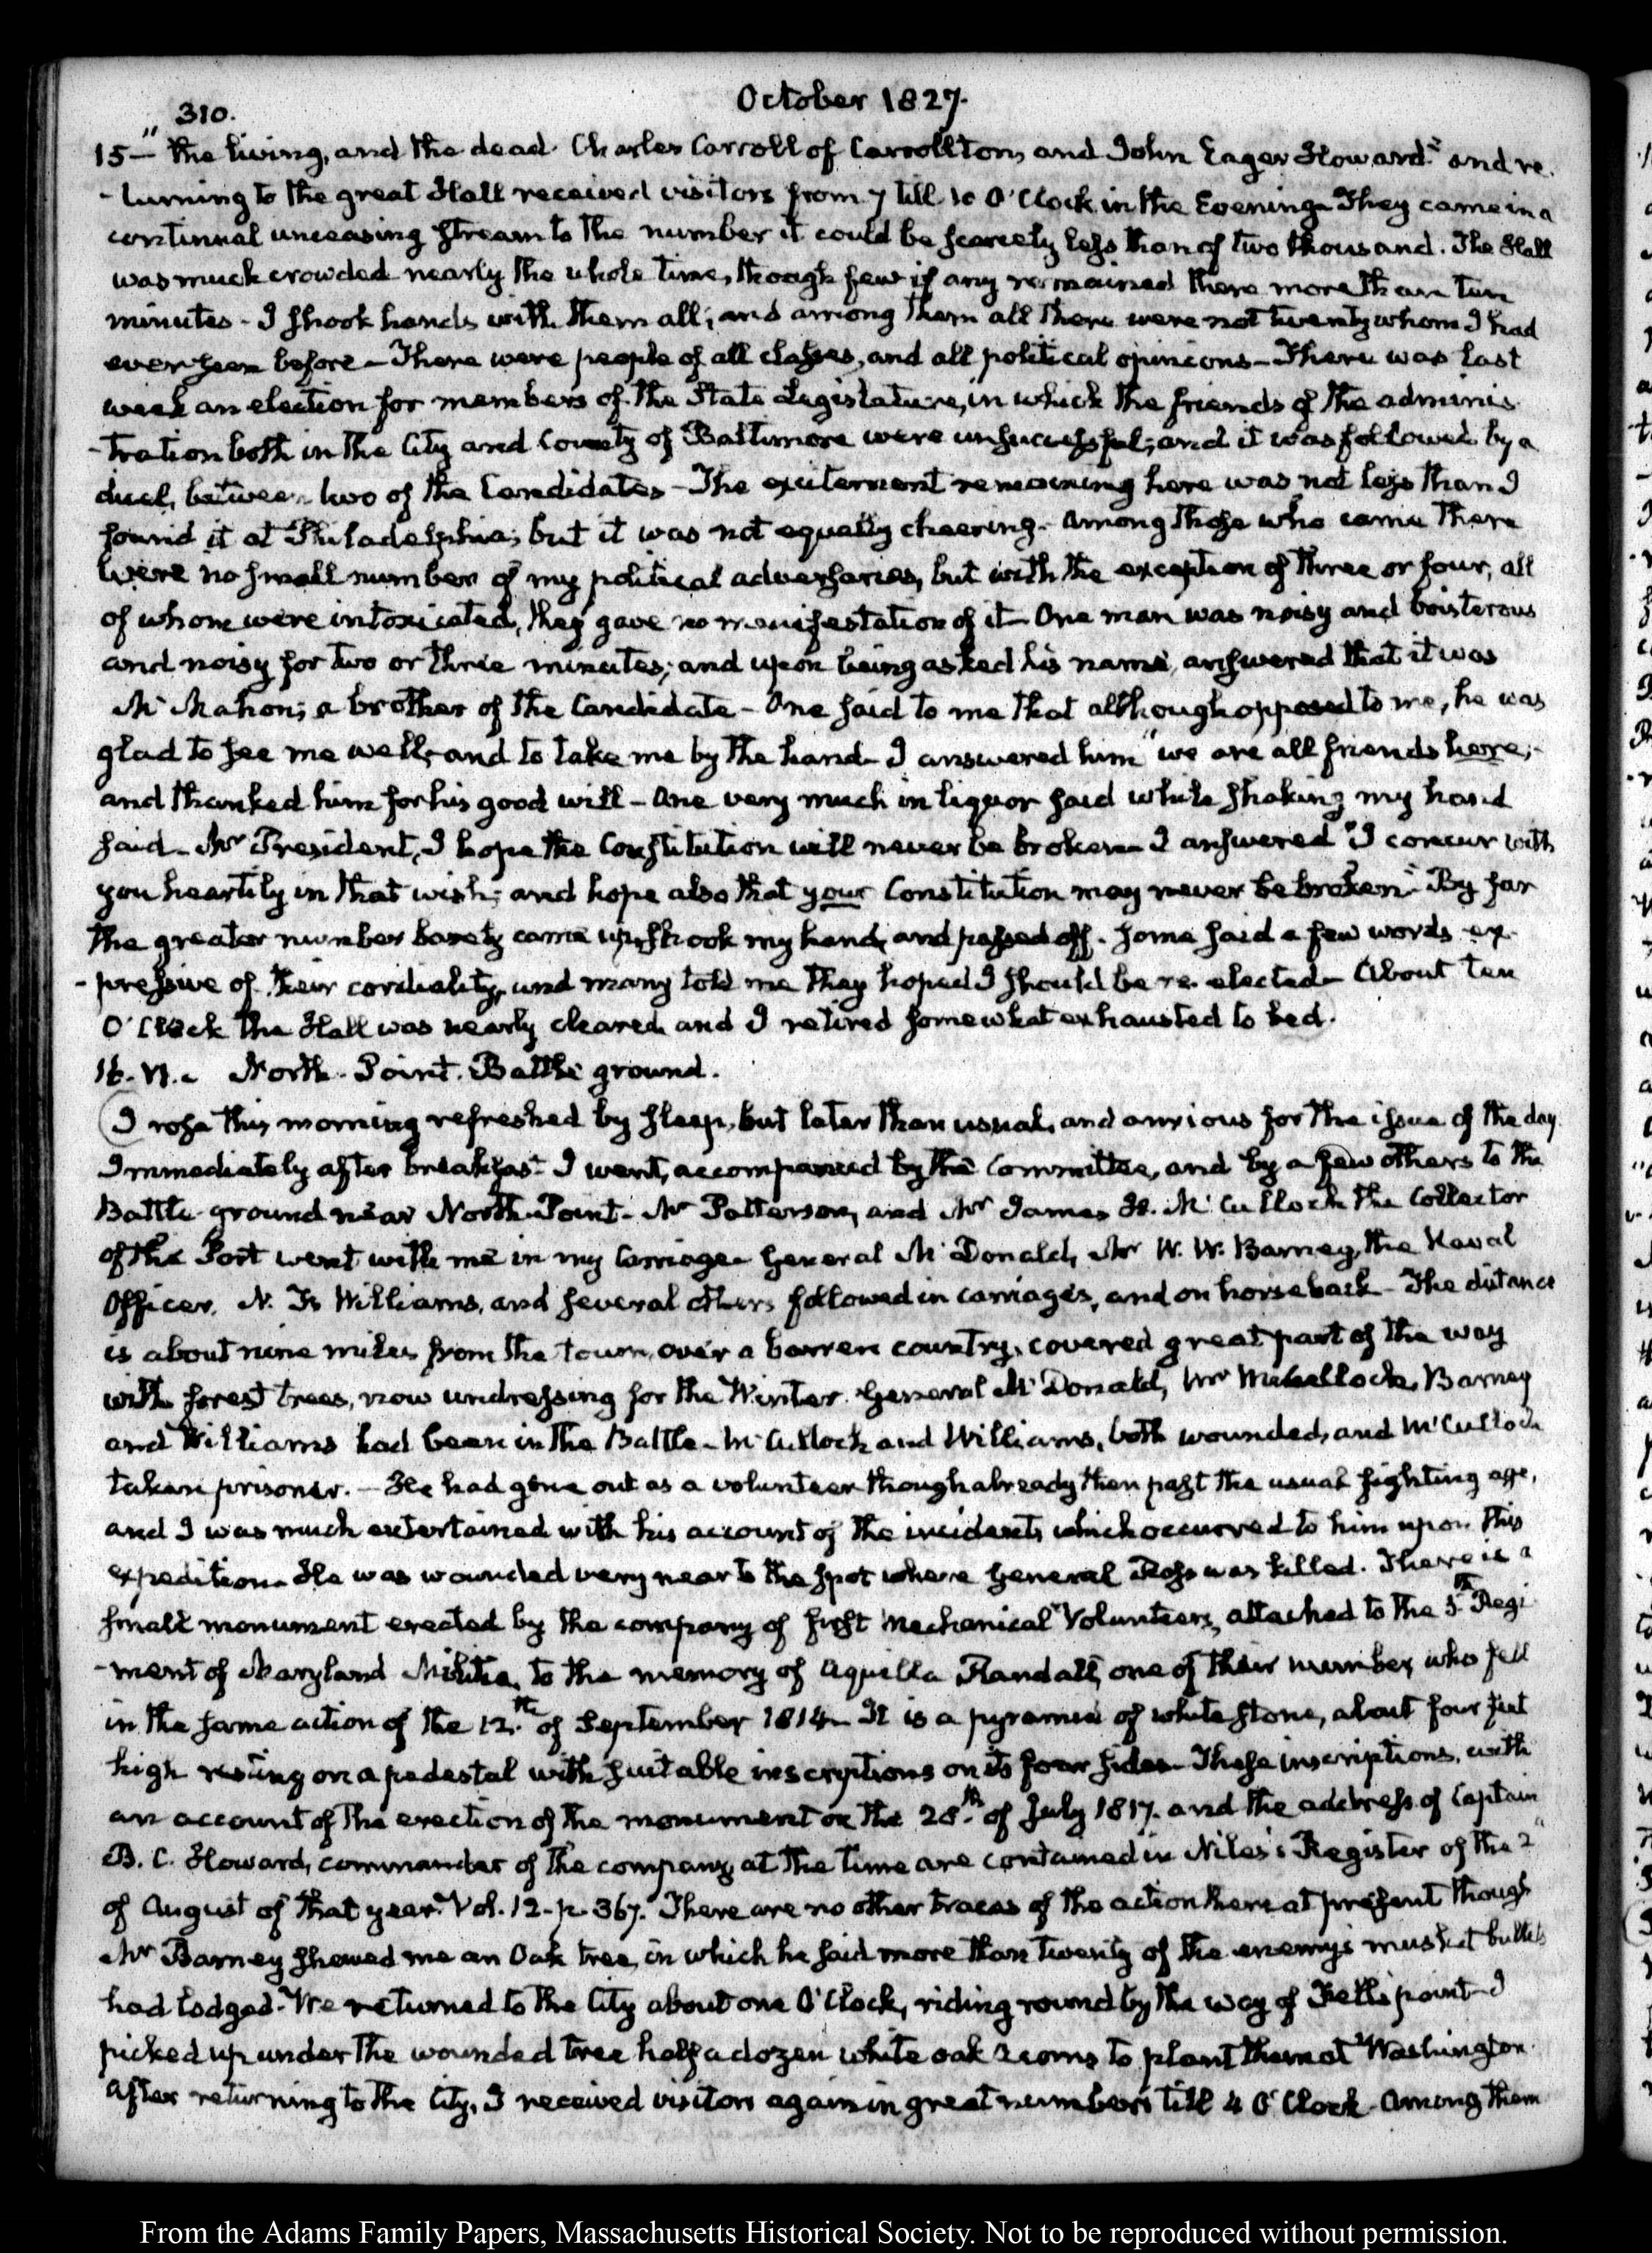 310.
October 1827.
15— "the living, and the dead. Charles Carroll of Carrollton, and John Eager Howard" and re-
-turning to the great Hall received visitors from 7 till 10 O'Clock in the Evening. They came in a
continual unceasing stream to the number it could be scarcely less than of two thousand. The Hall
was much crowded nearly the whole time, though few if any remained there more than ten
minutes - I shook hands with them all; and among them all there were not twenty whom I had
ever seen before - There were people of all classes, and all political opinions - There was last
week an election for members of the State Legislature, in which the friends of the adminis-
-tration both in the City and County of Baltimore were unsuccessful; and it was followed by a
duel, between two of the Candidates - The excitement remaining here was not less than I
found it at Philadelphia; but it was not equally cheering. Among those who came there
were no small number of my political adversaries, but with the exception of three or four, all
of whom were intoxicated, they gave no manifestation of it - One man was noisy and boisterous
and noisy for two or three minutes; and upon being asked his name, answered that it was
McMahon; a brother of the Candidate - One said to me that although opposed to me, he was
glad to see me well, and to take me by the hand - I answered him "we are all friends here;"
and thanked him for his good will - One very much in liquor said while shaking my hand
said - Mr President, I hope the Constitution will never be broken - I answered "I concur with
you heartily in that wish; and hope also that your Constitution may never be broken." By far
the greater number barely came up, shook my hand, and passed off. Some said a few words ex-
-pressive of their cordiality, and many told me they hoped I should be re-elected - About ten
O'Clock the Hall was nearly cleared and I retired somewhat exhausted to bed.
16. VI. North-Point. Battle ground.
I rose this morning refreshed by sleep, but later than usual, and anxious for the issue of the day.
Immediately after breakfast I went, accompanied by the Committee, and by a few others to the
Battle-ground near North-Point. Mr Patterson, and Mr James H. McCulloch the Collector
of the Port went with me in my Carriage - General McDonald, Mr W. W. Barney, the Naval
Officer, N. F. Williams, and several others followed in carriages, and on horseback - The distance
is about nine miles from the town, over a barren country, covered great part of the way
with forest trees, now undressing for the Winter. General McDonald, Mr McCulloch, Barney
and Williams had been in the Battle - McCulloch and Williams, both wounded, and McCulloch
taken prisoner. - He had gone out as a volunteer though already then past the usual fighting age,
and I was much entertained with his account of the incidents which occurred to him upon this
expedition. He was wounded very near to the spot where General Ross was killed. There is a
small monument erected by the company of first Mechanical Volunteers, attached to the 5th Regi-
-ment of Maryland Militia, to the memory of Aquilla Randall, one of their number, who fell
in the same action of the 12th of September 1814 - It is a pyramid of white stone, about four feet
high resting on a pedestal with suitable inscriptions on its four sides - These inscriptions, with
an account of the erection of the monument on the 28th of July 1817. and the address of Captain
B. C. Howard, commander of the company at the time are contained in Niles's Register of the 2d
of August of that year. Vol. 12 - p. 367. There are no other traces of the action there at present though
Mr Barney showed me an Oak tree, in which he said more than twenty of the enemy's musket bullets
had lodged. We returned to the City about one O'Clock, riding round by the way of Fell's point - I
picked up under the wounded tree half a dozen white oak acorns to plant them at Washington.
After returning to the City, I received visitors again in great numbers till 4 O'Clock. Among them
From the Adams Family Papers, Massachusetts Historical Society. Not to be reproduced without permission.